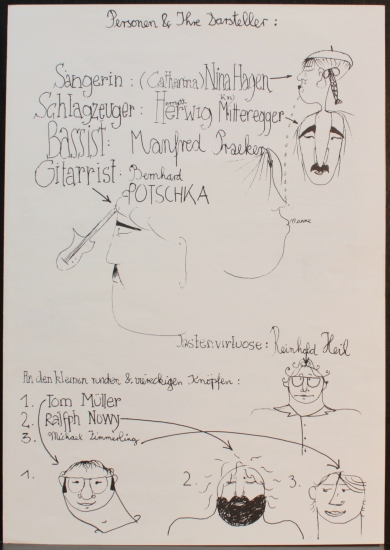 Personen & Ihre Darsteller:
Sängerin: (Catharina) Nina Hagen
Schlagzeuger: Herwig Mitteregger
Bassist: Manfred Praeker
Gitarrist: Bernhard
POTSCHKA
Manne
Tastenvirtuose: Reinhold Heil
An den kleinen runden & viereckigen Knöpfen:
1. Tom Müller
2. Ralfph Nowy
3. Michael Zimmerling
1. 2. 3.